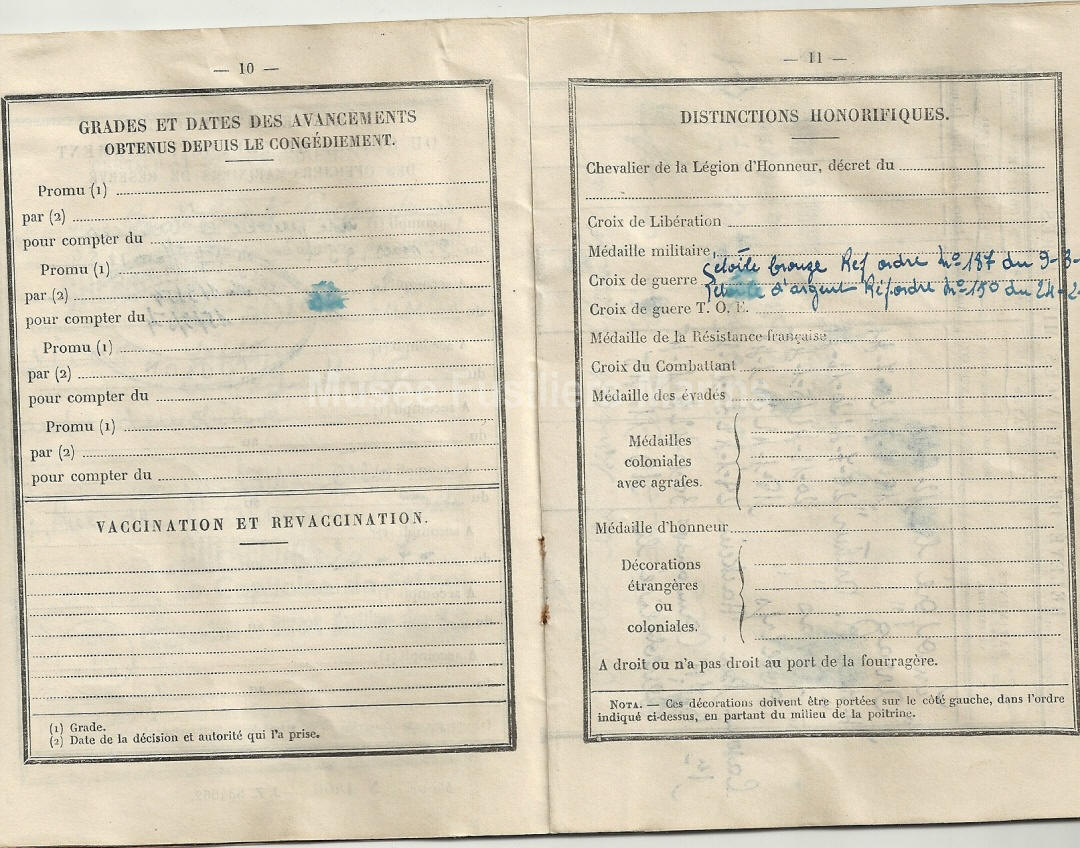 — 10 —
GRADES ET DATES DES AVANCEMENTS
OBTENUS DEPUIS LE CONGÉDIEMENT.
Promu (1)
par (2)
pour compter du
Promu (1)
par (2)
pour compter du
Promu (1)
par (2)
pour compter du
Promu (1)
par (2)
pour compter du
VACCINATION ET REVACCINATION.
(1) Grade.
(2) Date de la décision et autorité qui l'a prise.
— 11 —
DISTINCTIONS HONORIFIQUES.
Chevalier de la Légion d'Honneur, décret du
Croix de Libération
Médaille militaire,
étoile bronze Ref ordre No 187 du 9-8-
Croix de guerre
étoile d'argent Ref ordre No 150 du 24-2
Croix de guere T. O. E.
Médaille de la Résistance française
Croix du Combattant
Médaille des évadés
Médailles
coloniales
avec agrafes.
Médaille d'honneur
Décorations
étrangères
ou
coloniales.
A droit ou n'a pas droit au port de la fourragère.
NOTA. — Ces décorations doivent être portées sur le côté gauche, dans l'ordre
indiqué ci-dessus, en partant du milieu de la poitrine.
Musée Fusiliers Marins